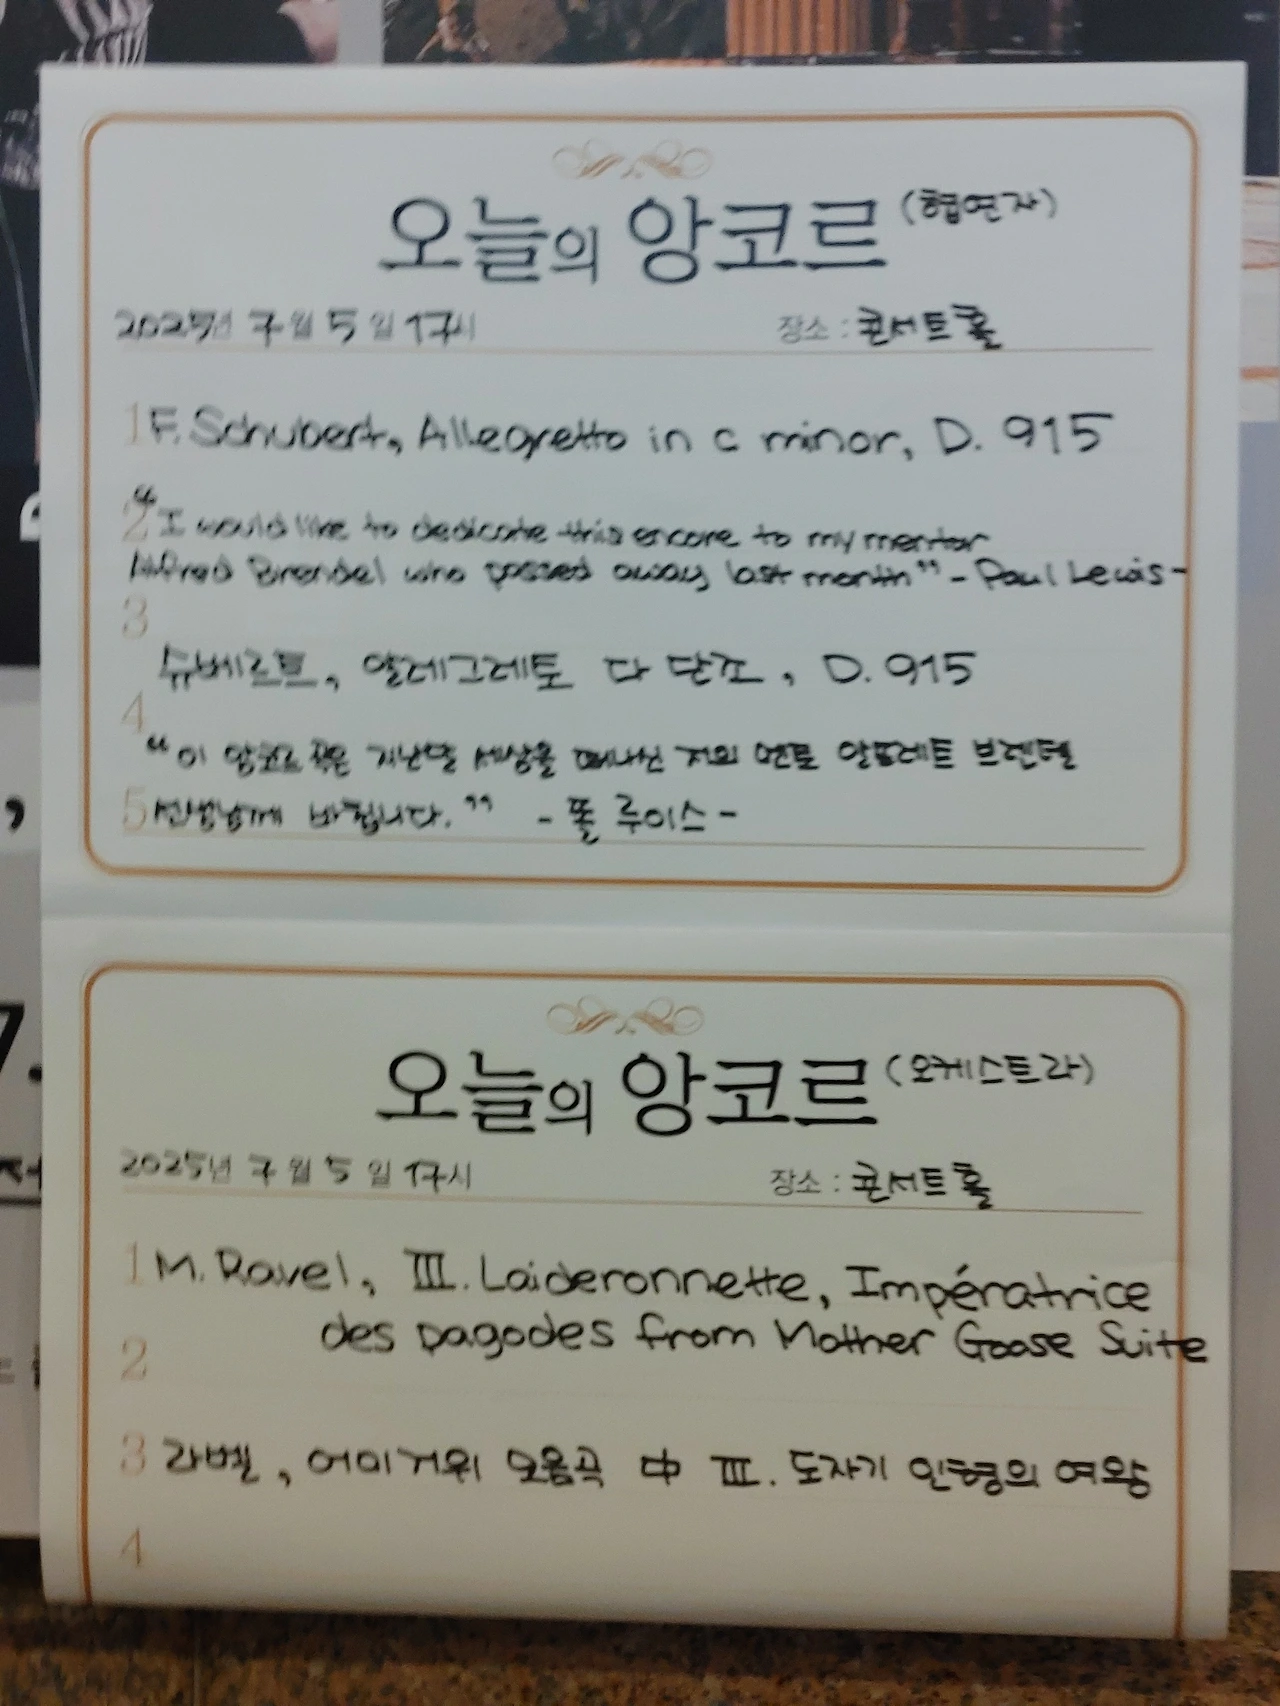 오늘의 앙코르 (협연자)
2025년 7월 5일 17시 장소 : 콘서트홀
1 F. Schubert, Allegretto in c minor, D. 915
2 "I would like to dedicate this encore to my mentor
Alfred Brendel who passed away last month" - Paul Lewis -
3
슈베르트, 알레그레토 다 단조, D. 915
4
"이 앙코르 곡은 지난달 세상을 떠나신 저의 멘토 알프레트 브렌델
5 선생님께 바칩니다." - 폴 루이스 -
오늘의 앙코르 (오케스트라)
2025년 7월 5일 17시 장소 : 콘서트홀
1 M. Ravel, III. Laideronnette, Impératrice
des pagodes from Mother Goose Suite
2
3 라벨, 어미거위 모음곡 中 III. 도자기 인형의 여왕
4
7.